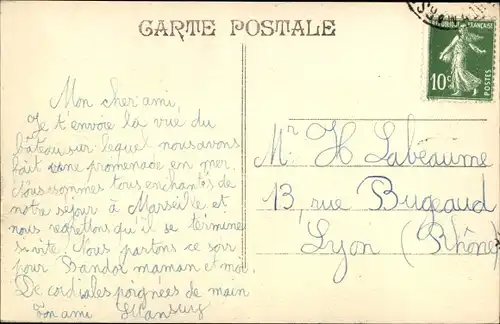 CARTE POSTALE
RÉPUBLIQUE FRANÇAISE
10c
POSTES
Mon cher ami,
Je t'envoie la vue du
bâteau sur lequel nous avons
fait une promenade en mer.
Nous sommes tous enchantés de
notre séjour à Marseille et
nous regrettons qu'il se termine
si vite. Nous partons ce soir
pour Bandol maman et moi.
De cordiales poignées de main
Ton ami
Mr H Labeaume
13, rue Bugeaud
Lyon (Rhône)